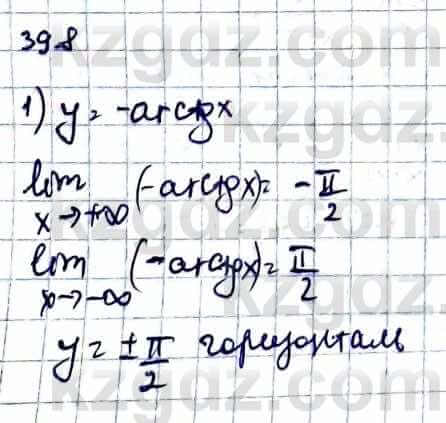 398
1) y = -arctgx
lim (-arctgx) = -π/2
x→+∞
lim (-arctgx) = π/2
x→-∞
y = ±π/2 горизонталь
kzgdz.com